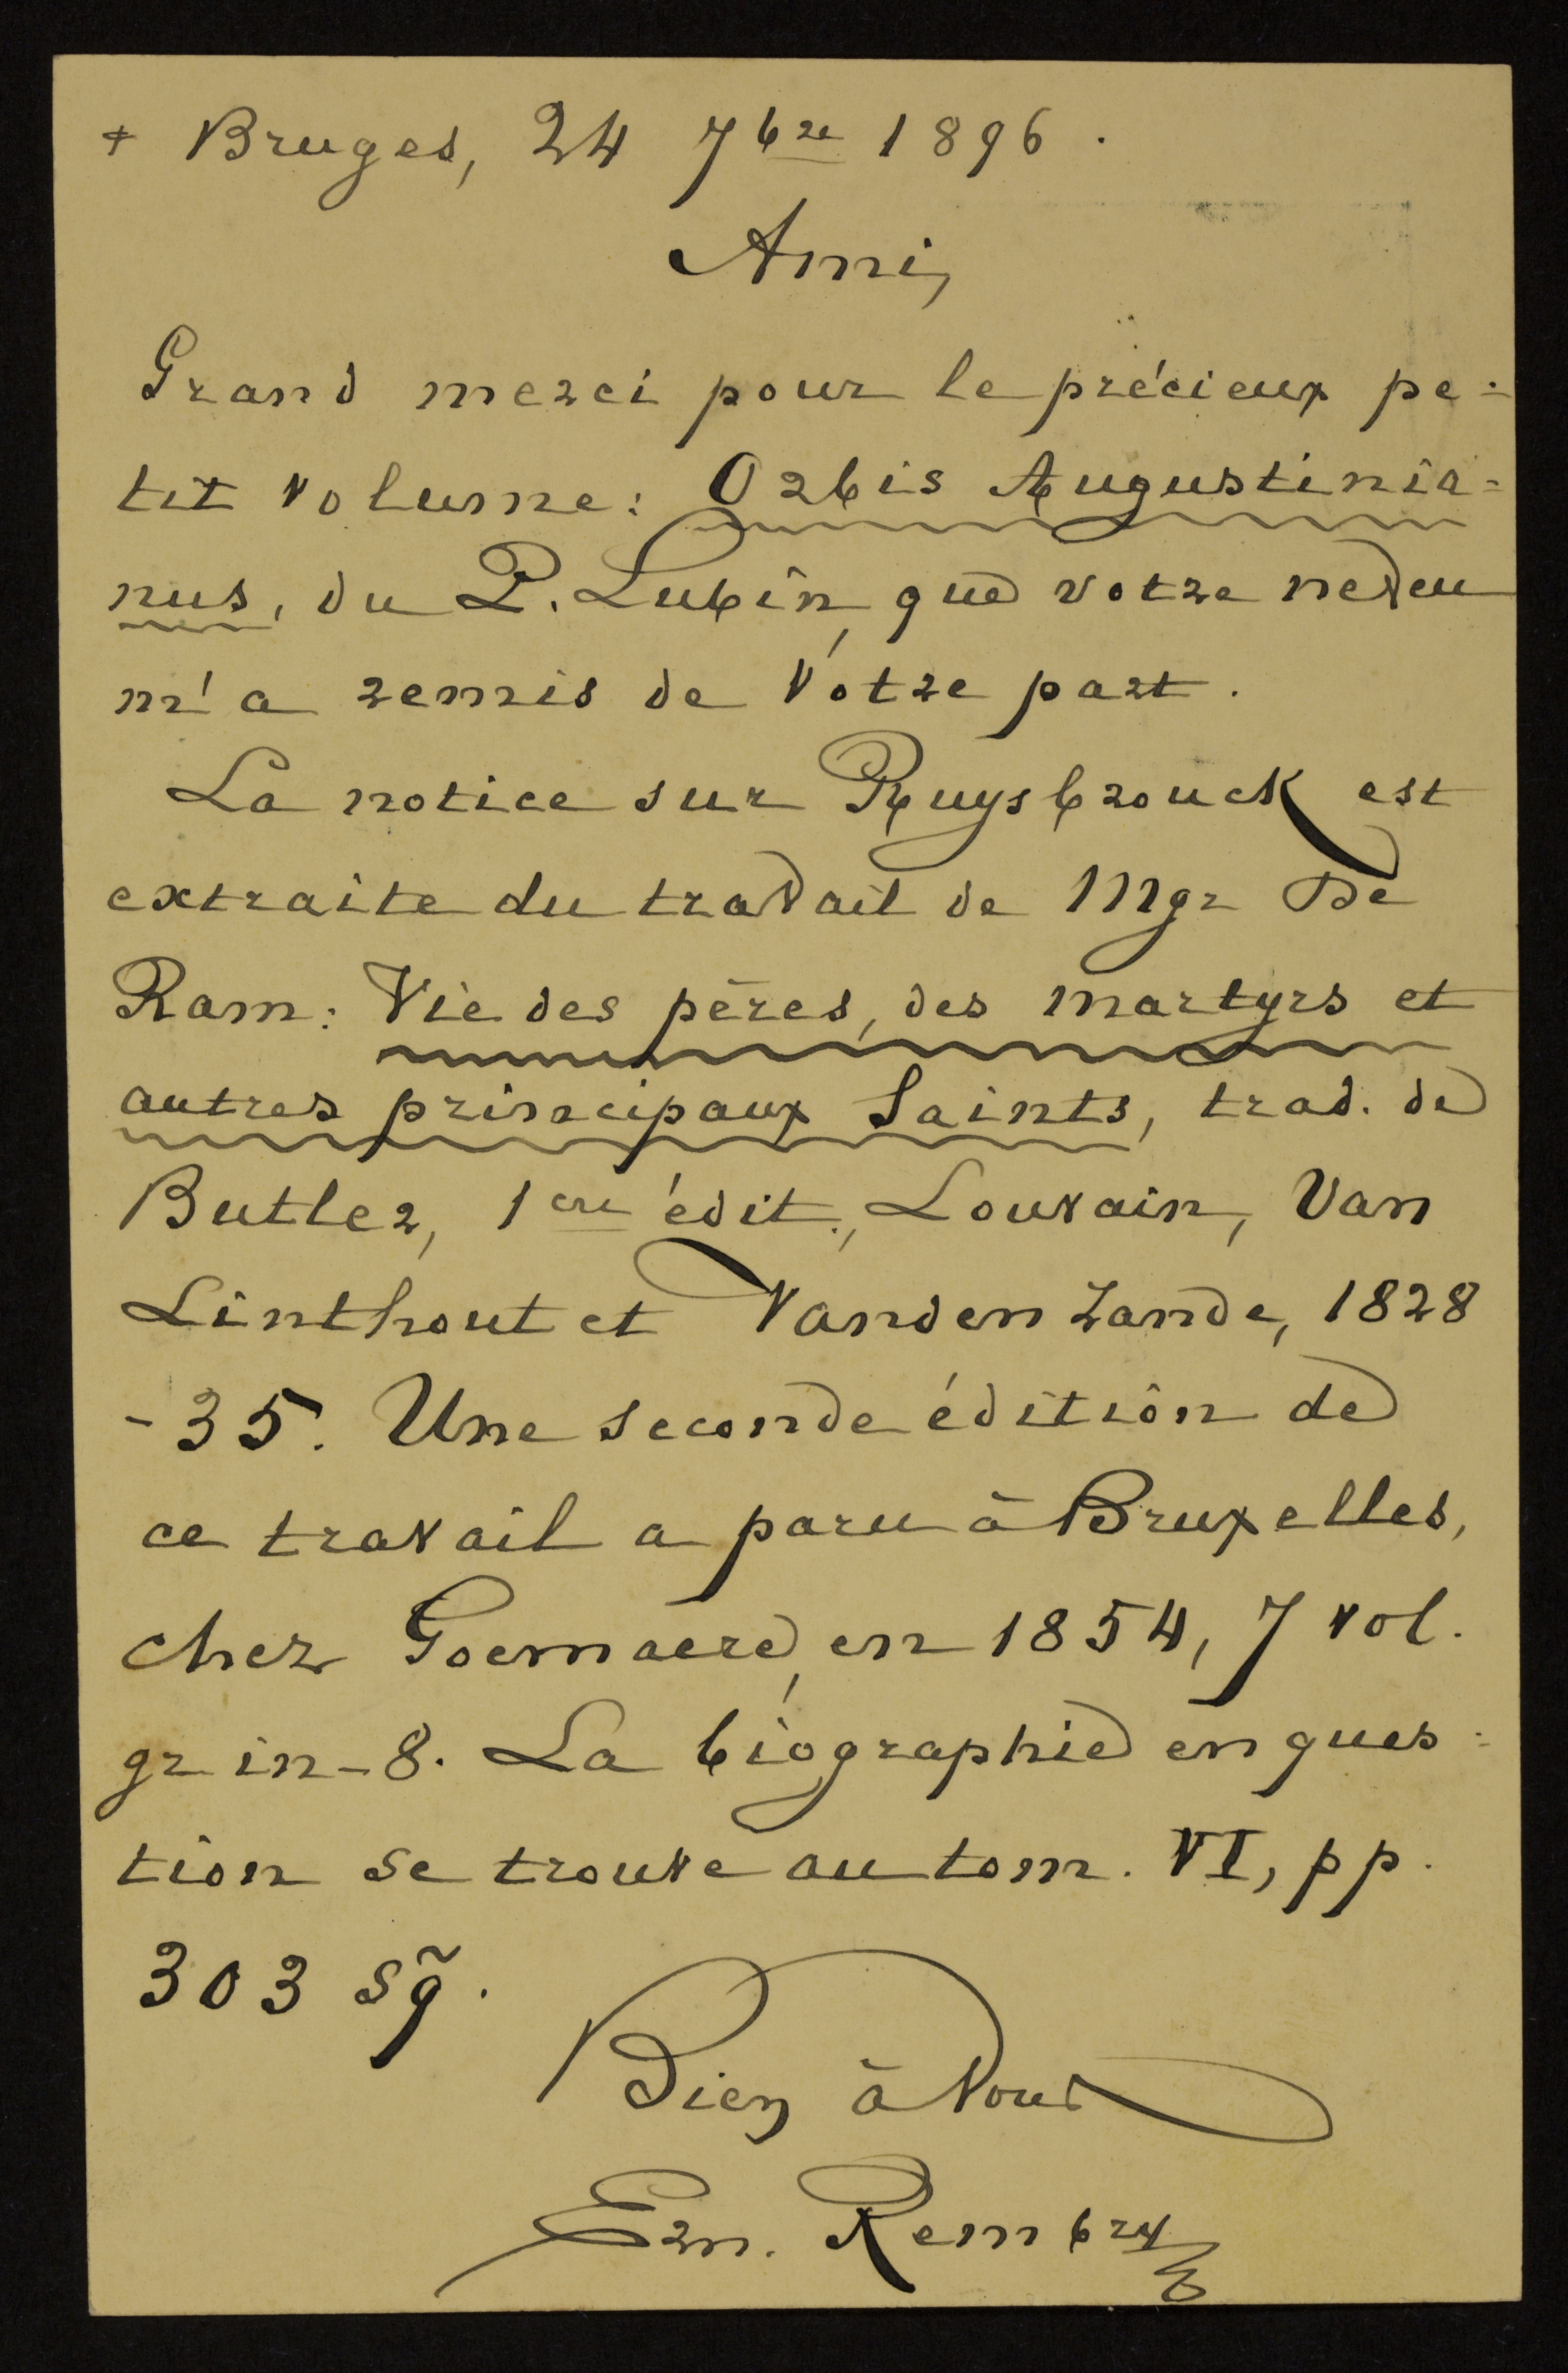 + Bruges, 24 7bre 1896.
Ami,
Grand merci pour le précieux pe=
tit volume: Orbis Augustinia=
nus, du P. Lubin, que votre neveu
m'a remis de votre part.
La notice sur Ruysbrouck est
extraite du travail de Mgr De
Ram: Vie des pères, des martyrs et
autres principaux Saints, trad. de
Butler, 1ere édit., Louvain, Van
Linthout et Vanden Zande, 1828
-35. Une seconde édition de
ce travail a paru à Bruxelles,
chez Goemaere, en 1854, 7 vol.
gr in-8. La biographie en ques=
tion se trouve au tom. VI, pp.
303 sq̃.
Bien à vous
Ern. Rembry